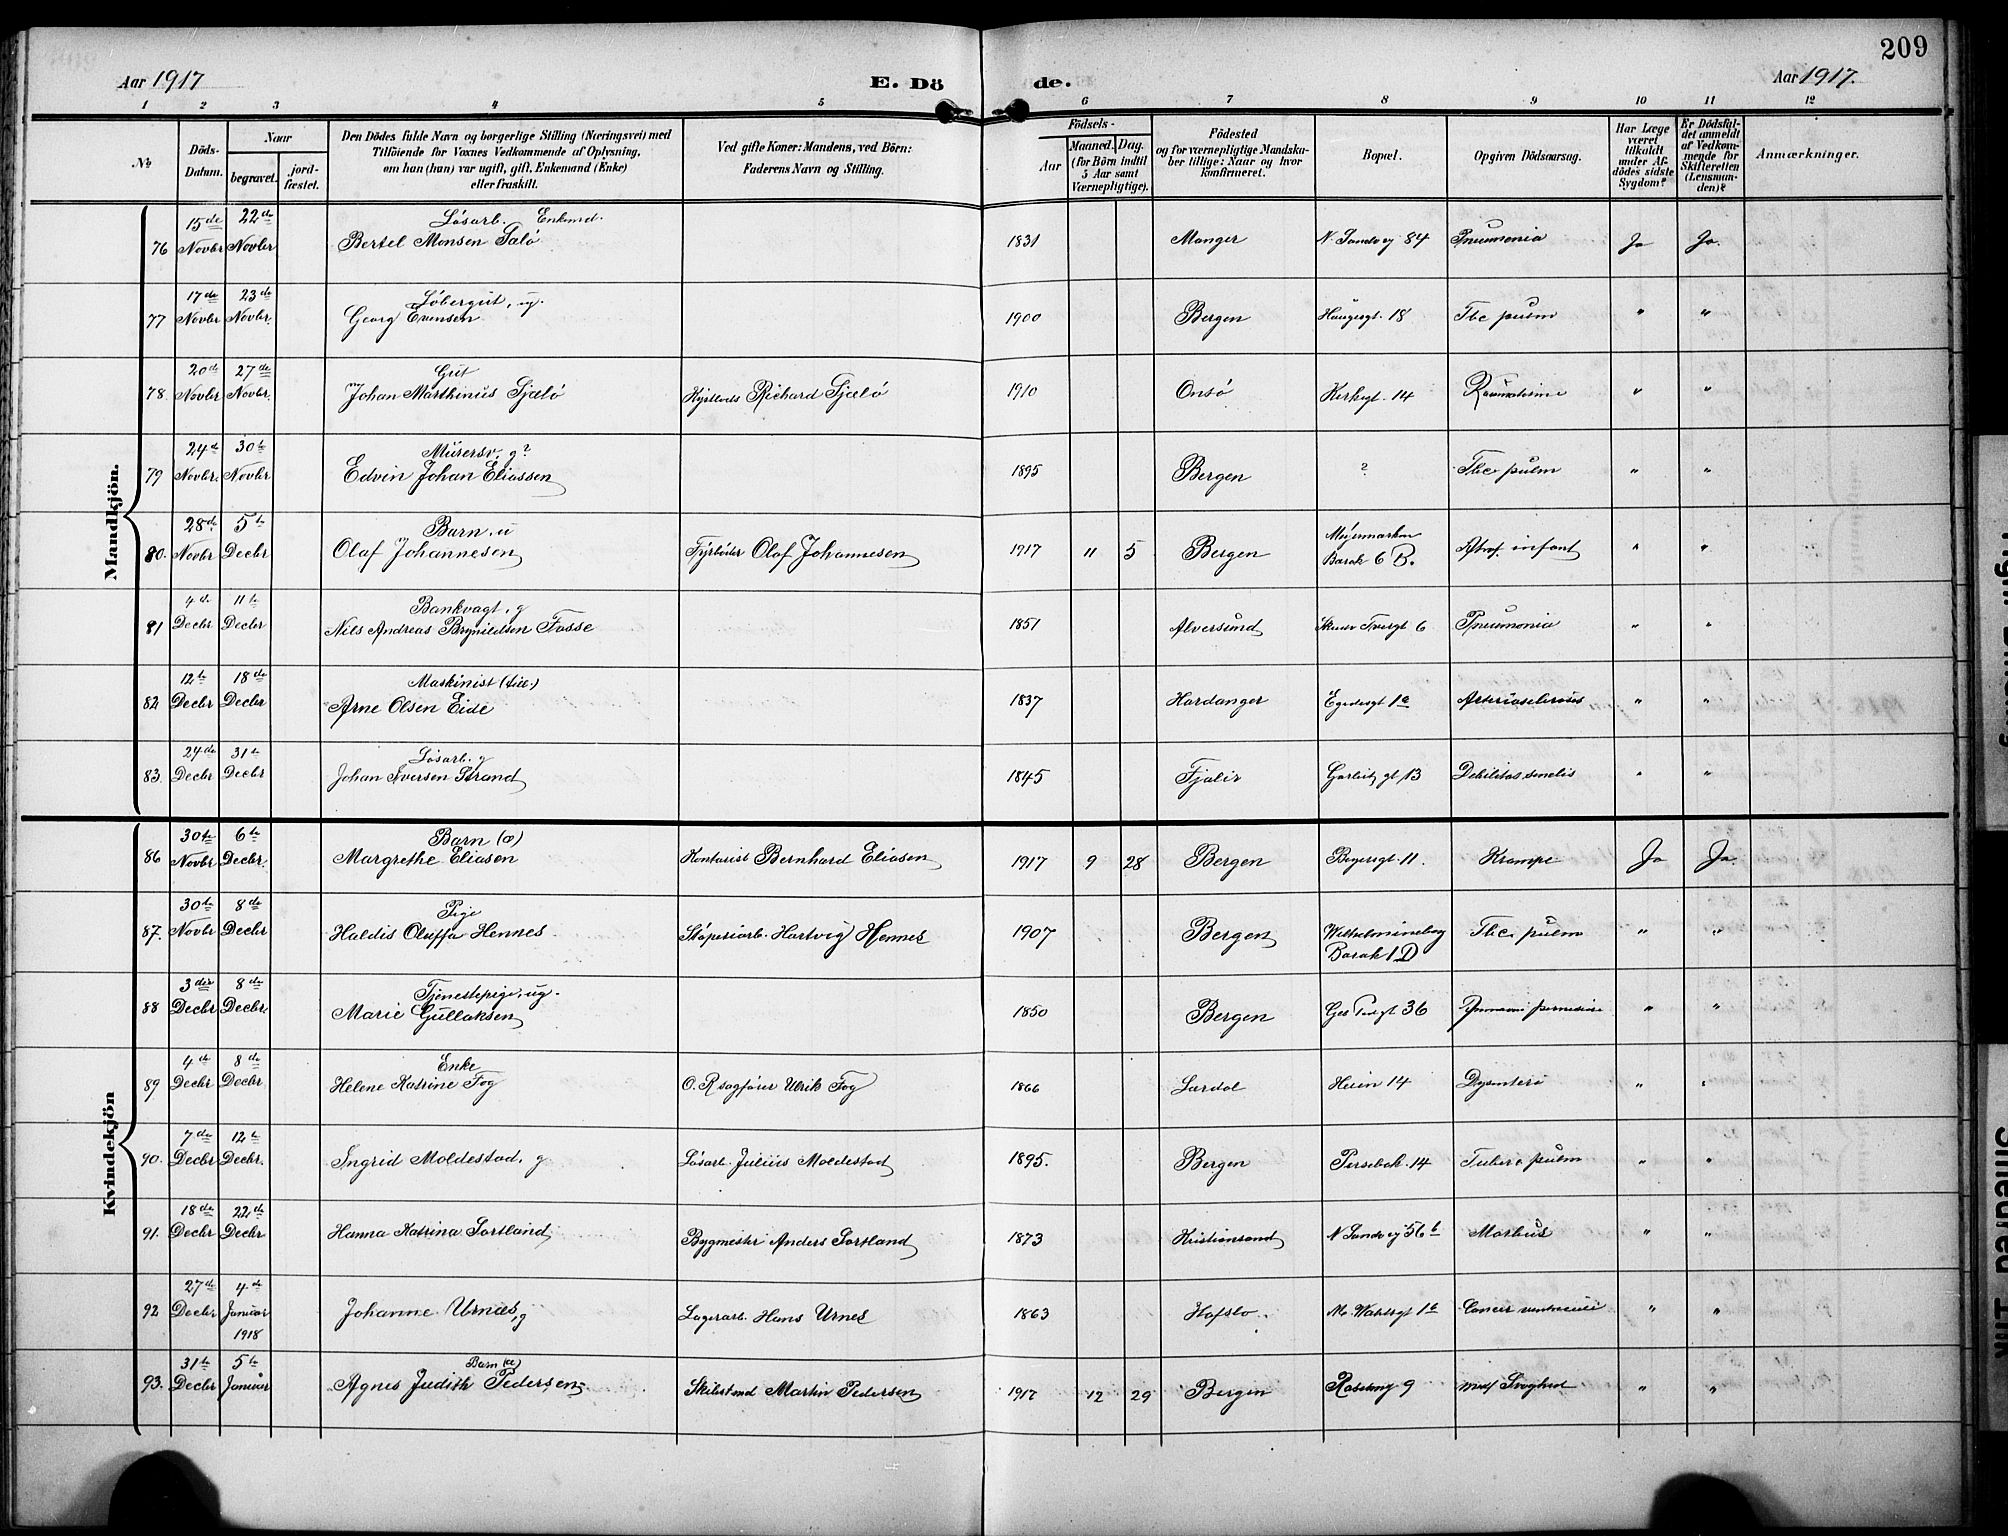 209
Aar 1917
E. Dö
de.
Aar 1917.
1 2 3 4 5 6 7 8 9 10 11 12
No
Döds-
Datum.
Naar
begravet.
jord-
fæstet.
Den Dödes fulde Navn og borgerlige Stilling (Næringsvei) med
Tilföiende for Voxnes Vedkommende af Oplysning,
om han (hun) var ugift, gift, Enkemand (Enke)
eller fraskilt.
Ved gifte Koner: Mandens, ved Börn:
Faderens Navn og Stilling.
Födsels-
Aar
Maaned.
Dag.
(for Börn indtil
5 Aar samt
Værnepligtige).
Födested
og for værnepligtige Mandska-
ber tillige: Naar og hvor
konfirmeret.
Bopæl.
Opgiven Dödsaarsag.
Har Læge
været
tilkaldt
under Af-
dödes sidste
Sygdom?
Er Dödsfal-
det anmeldt
af Vedkom-
mende for
Skifteretten
(Lensman-
den)?
Anmærkninger.
Mandkjön.
15de 22de Løsarb. Enkemd.
76 Novbr Novbr Bertel Monsen Salø 1831 Manger N. Sandvej 84 Pneumonia Ja Ja.
17de 23de Løbergut, ug.
77 Novbr Novbr. Georg Evensen 1900 Bergen Haugesgt. 18 Tbc pulm " "
20de 27de Gut
78. Novbr Novbr. Johan Marthinus Sjælø Richard Sjælø 1910 Onsø Kirkegt. 14 " "
24de 30te Murersv. g?
79 Novbr. Novbr Edvin Johan Eliassen 1895 Bergen ? Tbc. pulm " "
28de 5te Barn, u
80. Novbr Decbr Olaf Johannesen Fyrbøder Olaf Johannesen 1917 11 5 Bergen Møjemarken
Barak 6 B. Atrof. infant " "
4de 11te Bankvagt, g
81 Decbr Decbr Nils Andreas Brynildsen Fosse 1851 Alversund Tvergt 6 Pneumonia " "
12te 18de Maskinist
82 Decbr Decbr Arne Olsen Eide 1837 Hardanger Egedesgt 1a Arteriosclerosis " "
24de 31te Løsarb. g
83. Decbr Decbr Johan Iversen Strand 1845 Fjaler gt 13 Debilitas senelis " "
Kvindekjön
30te 6te Barn (æ)
86 Novbr Decbr. Margrethe Eliasen Kontorist Bernhard Eliasen 1917 9 28 Bergen Bøgersgt. 11. Krampe Ja Ja.
30te 8de Pige
87. Novbr Decbr Haldis Oluffa Hennes Støperiarb. Hartvig Hennes 1907 Bergen Wilhelmineborg
Barak 1 D Tbc. pulm " "
3die 8de Tjenestepige, ug.
88 Decbr Decbr. Marie Gullaksen 1850 Bergen 36 " "
4de 8de Enke
89 Decbr Decbr Helene Katrine Fog O. R. sagfører Ulrik Fog 1866 Lærdal Heien 14 Dysenteri " "
7de 12te
90. Decbr Decbr. Ingrid Moldestad, g Løsarb. Julius Moldestad 1895. Bergen Persebak. 14 Tuberc pulm " "
18de 22de
91. Decbr Decbr Hanna Katrina Sortland Bygmester Anders Sortland 1873 Kristiansand N Sandvej 56b Morbus " "
27de 4de
92 Decbr Januar Johanne Urnæs, g Lagerarb. Hans Urnes 1863 Hafslo. M. Wahlsgt 1a Cancer ventriculi " "
1918
31te 5te Barn (æ)
93. Decbr Januar Agnes Judith Pedersen Martin Pedersen 1917 12 29 Bergen Roseng 9 medf Svaghed " "